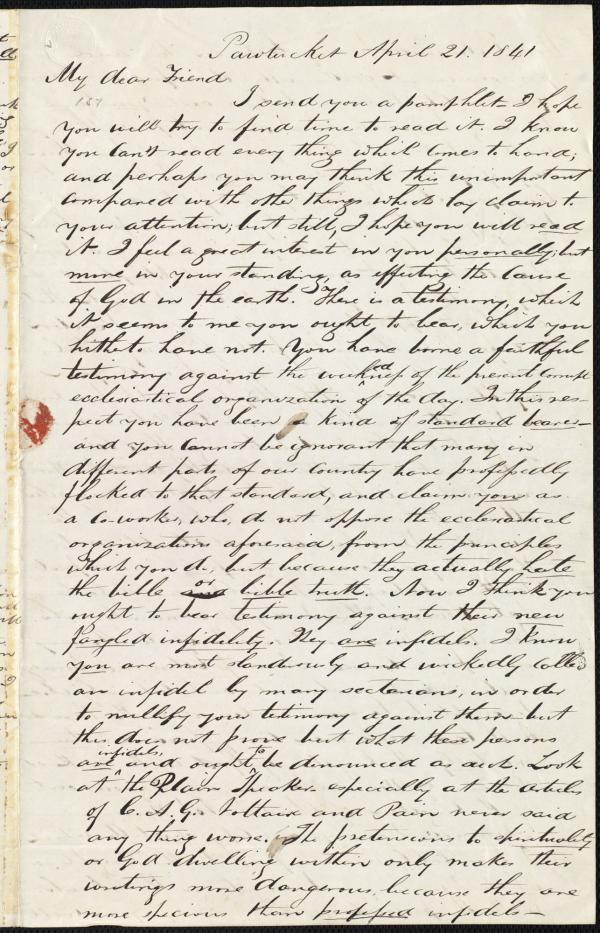 Pawtucket April 21. 1841
My dear Friend
157
I send you a pamphlet I hope
you will try to find time to read it. I know
you can't read every thing which comes to hand;
and perhaps you may think this unimportant
compared with other things which lay claim to
your attention; but still, I hope you will read
it. I feel a great interest in you personally; but
more in your standing, as effecting the cause
of God in the earth. There is a testimony, which
it seems to me you ought to bear, which you
hitherto have not. You have borne a faithful
testimony against the wickedness of the present corrupt
ecclesiastical organization of the day. In this res-
pect you have been a kind of standard bearer—
and you cannot be ignorant that many in
different parts of our country have professedly
flocked to that standard, and claim you as
a co-worker, who, do not oppose the ecclesiastical
organizations aforesaid, from the principles
which you do, but because they actually hate
the bible or bible truth. Now I think you
ought to bear testimony against their new
fangled infidelity. They are infidels. I know
you are most slanderously and wickedly called
an infidel by many sectarians, in order
to nullify your testimony against them but
this does not prove but what these persons
are infidels, and ought to be denounced as such. Look
at the Plain Speaker especially at the articles
of C. A. G. Voltair and Pain never said
any thing worse. The pretensions to spirituality
or God dwelling within only makes their
writings more dangerous, because they are
more specious than professed infidels—